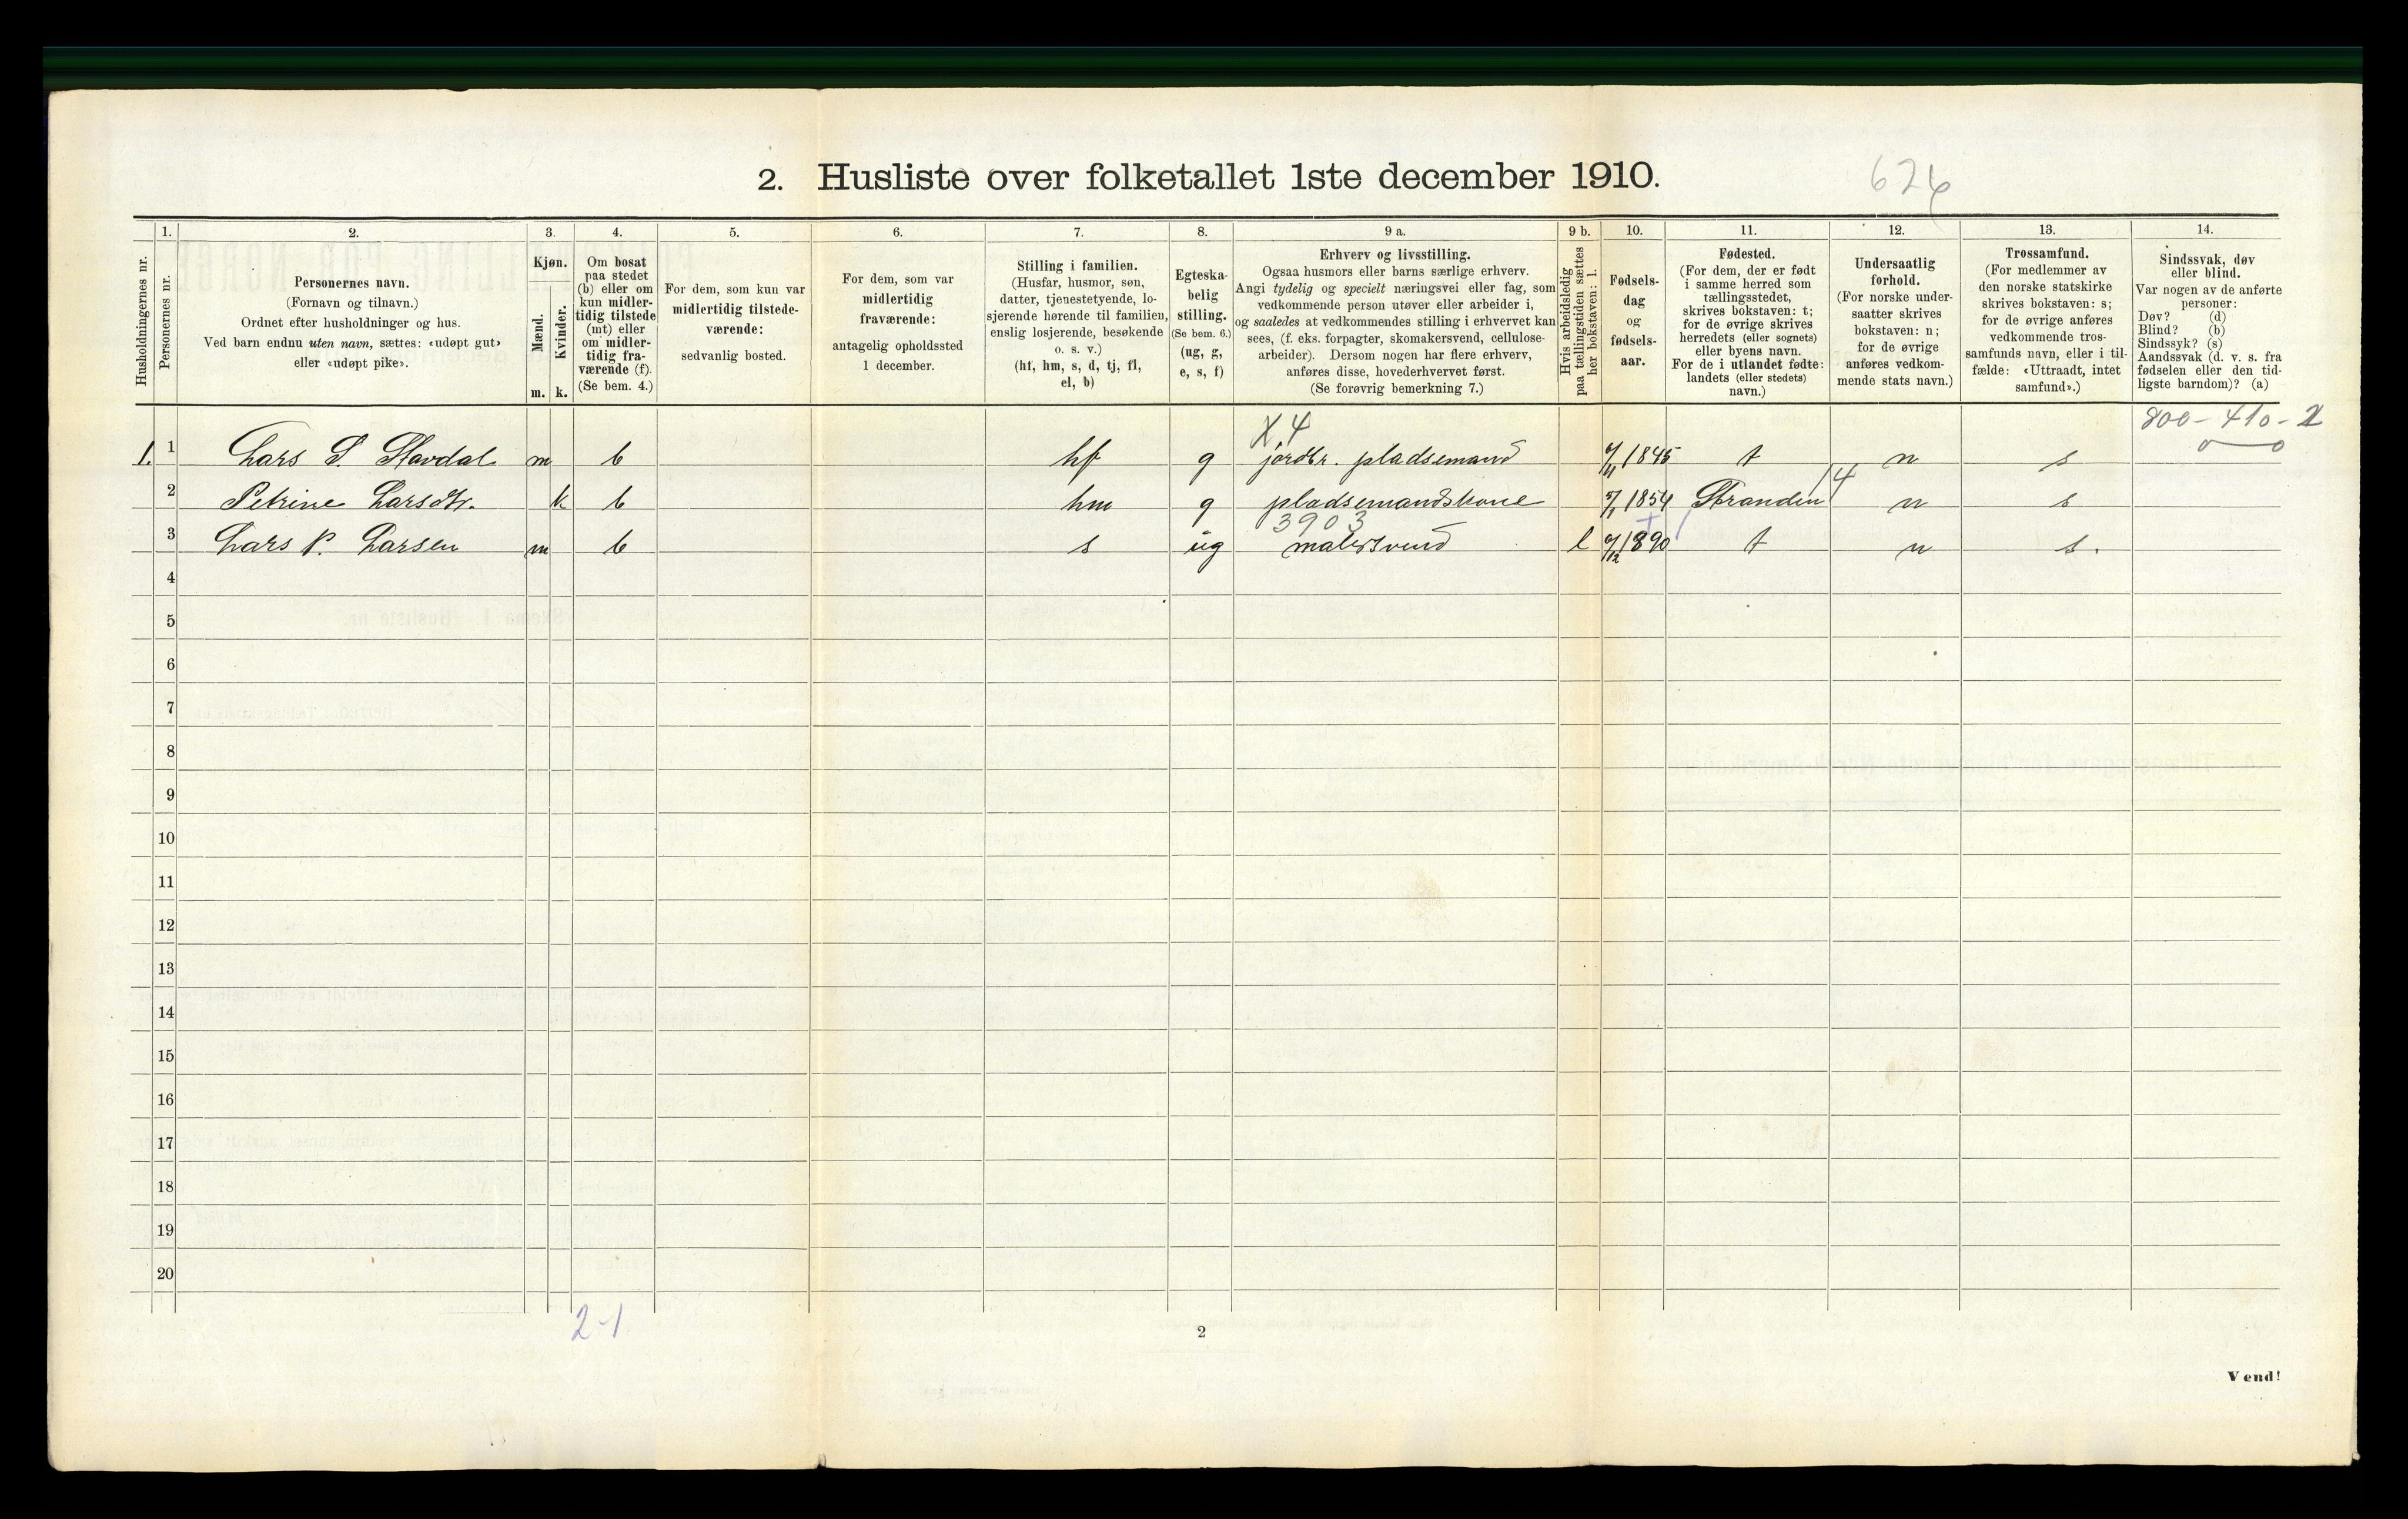 2. Husliste over folketallet 1ste december 1910.
626
Husholdningernes nr.
1.
Personernes nr.
2.
Personernes navn.
(Fornavn og tilnavn.)
Ordnet efter husholdninger og hus.
Ved barn endnu uten navn, sættes: «udøpt gut»
eller «udøpt pike».
3.
Kjøn.
Mænd.
Kvinder.
m. k.
4.
Om bosat
paa stedet
(b) eller om
kun midler-
tidig tilstede
(mt) eller
om midler-
tidig fra-
værende (f).
(Se bem. 4.)
5.
For dem, som kun var
midlertidig tilstede-
værende:
sedvanlig bosted.
6.
For dem, som var
midlertidig
fraværende:
antagelig opholdssted
1 december.
7.
Stilling i familien.
(Husfar, husmor, søn,
datter, tjenestetyende, lo-
sjerende hørende til familien,
enslig losjerende, besøkende
o. s. v.)
(hf, hm, s, d, tj, fl,
el, b)
8.
Egteska-
belig
stilling.
(Se bem. 6.)
(ug, g,
e, s, f)
9 a.
Erhverv og livsstilling.
Ogsaa husmors eller barns særlige erhverv.
Angi tydelig og specielt næringsvei eller fag, som
vedkommende person utøver eller arbeider i,
og saaledes at vedkommendes stilling i erhvervet kan
sees, (f. eks. forpagter, skomakersvend, cellulose-
arbeider). Dersom nogen har flere erhverv,
anføres disse, hovederhvervet først.
(Se forøvrig bemerkning 7.)
9 b.
Hvis arbeidsledig
paa tællingstiden sættes
her bokstaven: l.
10.
Fødsels-
dag
og
fødsels-
aar.
11.
Fødested.
(For dem, der er født
i samme herred som
tællingsstedet,
skrives bokstaven: t;
for de øvrige skrives
herredets (eller sognets)
eller byens navn.
For de i utlandet fødte:
landets (eller stedets)
navn.)
12.
Undersaatlig
forhold.
(For norske under-
saatter skrives
bokstaven: n;
for de øvrige
anføres vedkom-
mende stats navn.)
13.
Trossamfund.
(For medlemmer av
den norske statskirke
skrives bokstaven: s;
for de øvrige anføres
vedkommende tros-
samfunds navn, eller i til-
fælde: «Uttraadt, intet
samfund».)
14.
Sindssvak, døv
eller blind.
Var nogen av de anførte
personer:
Døv? (d)
Blind? (b)
Sindssyk? (s)
Aandssvak (d. v. s. fra
fødselen eller den tid-
ligste barndom)? (a)
X 4
1. 1 Lars S. Slavdal m b hf g jordbr. pladsemand 1845 t n s
2 Petrine Larsdtr. k b hm g pladsemandskone 1854 Stranden 14 n s
3903
3 Lars P. Larsen m b s ug malersvend l 1890 t n s.
4
5
6
7
8
9
10
11
12
13
14
15
16
17
18
19
20
2-1
2
Vend!